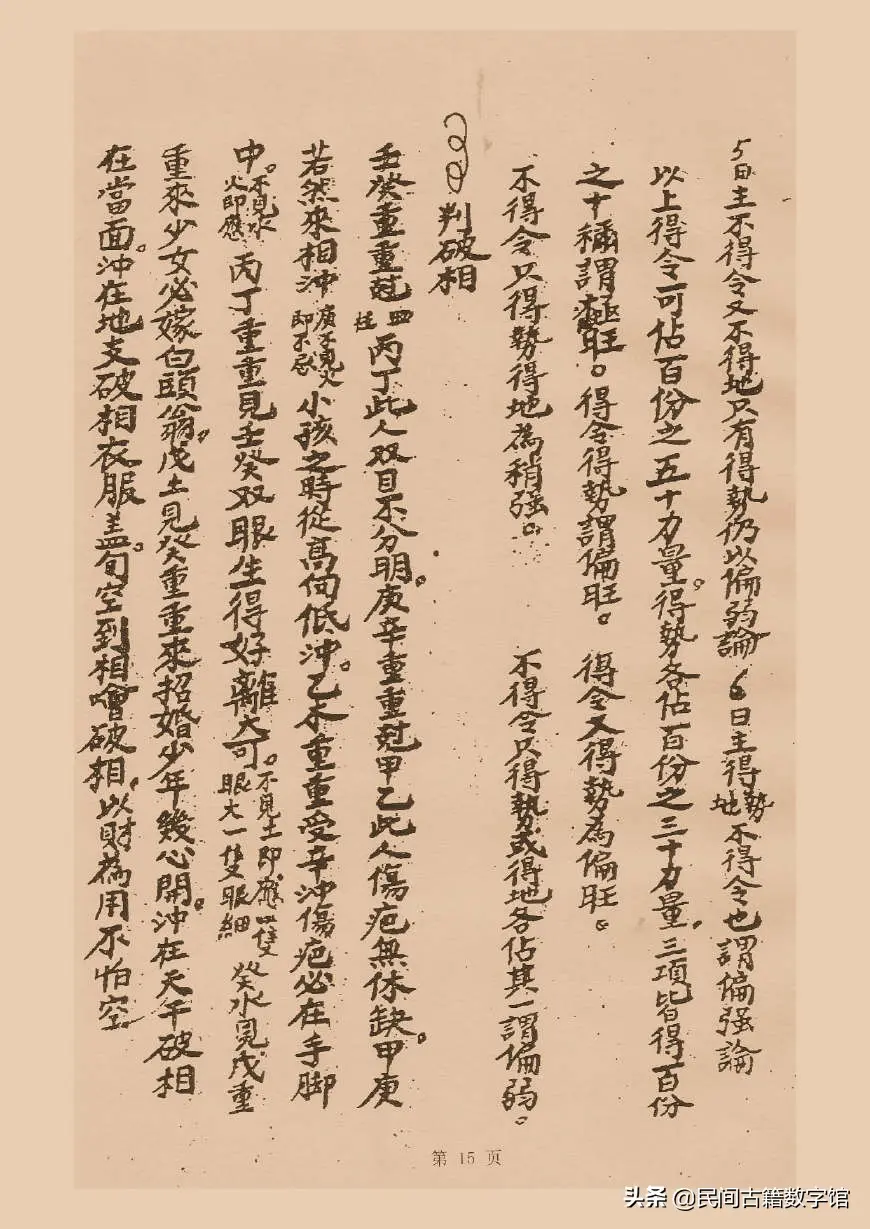 5日主不得令又不得地只有得勢仍以偏弱論 6日主得勢地不得令也謂偏强論
以上得令可佔百份之五十力量。得勢各佔百份之三十力量。三項皆得百份
之十稱謂極旺。得令得勢謂偏旺。 得令又得勢為偏旺。
不得令只得勢得地為稍强。 不得令只得勢或得地各佔其一謂偏弱。
判破相
壬癸重重尅四柱丙丁此人双目不分明。庚辛重重尅甲乙此人傷疤無休缺。甲庚
若然來相沖庚不見火即不忌小孩之時從高向低沖。乙木重重受辛沖傷疤必在手脚
中。不見水火即應丙丁重重見壬癸双眼生得好離大可。不見土即應一隻眼大一隻眼細 癸水見戊重
重來少女必嫁白頭翁。戊土見癸重重來招婚少年幾心開。沖在天干破相
在當面。沖在地支破相衣服盖。旬空到相會破相。以財為用不怕空
第 15 页
头条 @民间古籍数字馆